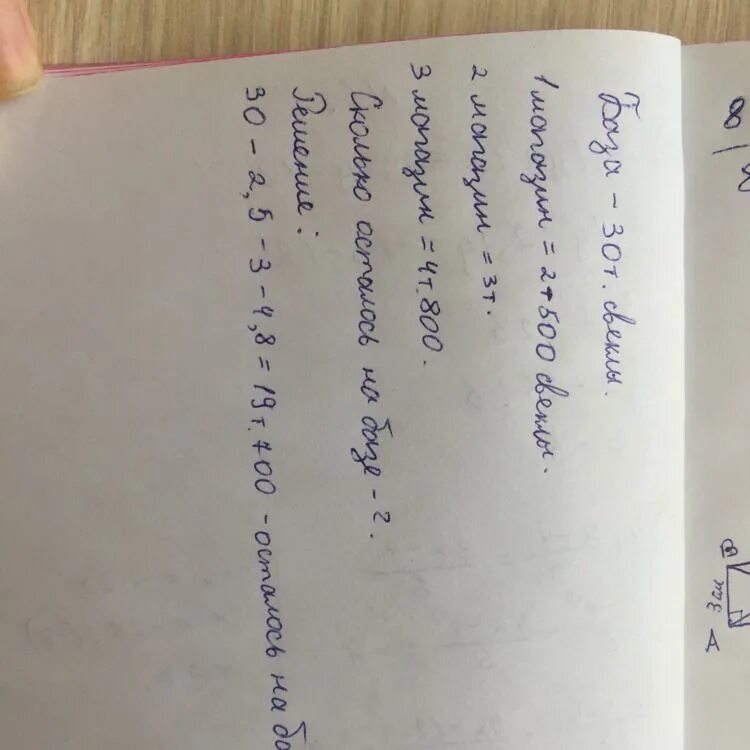 База - 30т. свеклы.
1 магазин = 2т500 свеклы.
2 магазин = 3т.
3 магазин = 4т.800.
Сколько осталось на базе - ?.
Решение:
30 - 2,5 - 3 - 4,8 = 19т.700 - осталось на ба
8
A